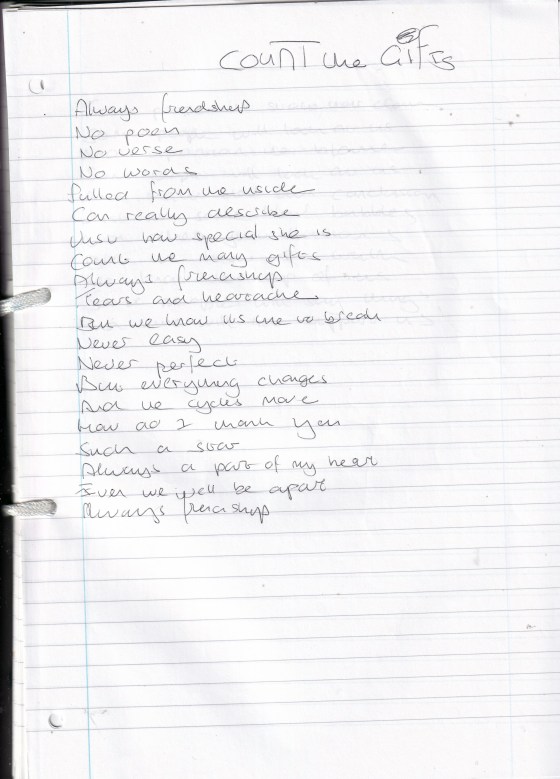 COUNT the GIFTS
Always friendship
No poem
No verse
No words
Pulled from the inside
Can really describe
Just how special she is
Count the many gifts
Always friendship
Tears and heartache
But we know its time to break
Never easy
Never perfect
But everything changes
And the cycles move
How do I thank you
Such a star
Always a part of my heart
Ever we will be apart
Always friendship